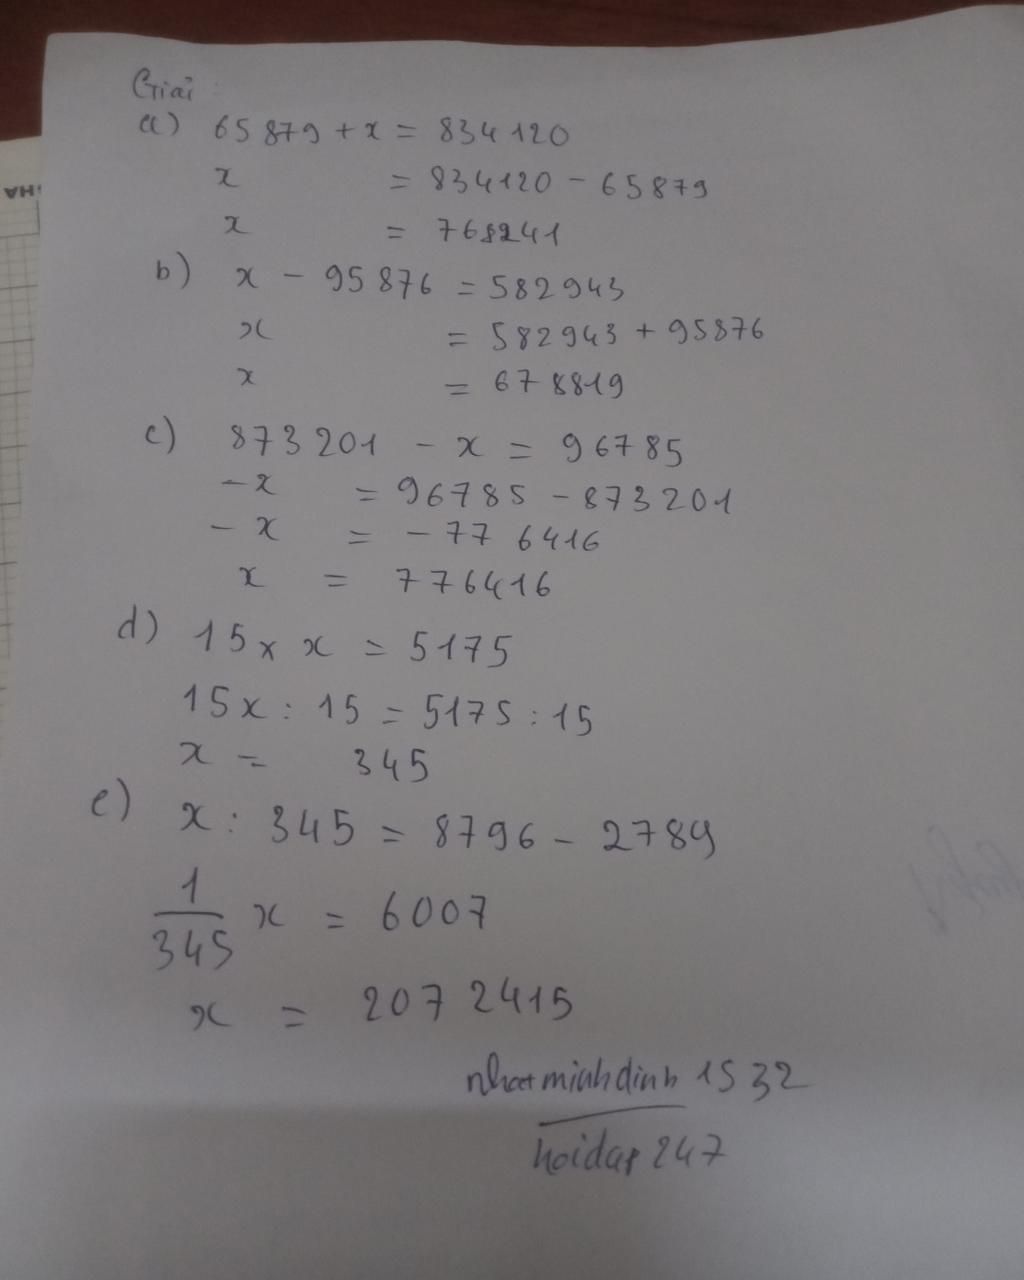 Giải :
a) 65879 + x = 834120
x = 834120 - 65879
x = 768241
b) x - 95876 = 582943
x = 582943 + 95876
x = 678819
c) 873201 - x = 96785
-x = 96785 - 873201
- x = - 776416
x = 776416
d) 15 x x = 5175
15x : 15 = 5175 : 15
x = 345
e) x : 345 = 8796 - 2789
1/345 x = 6007
x = 2072415
nhatminhdinh 1532
hoidap 247